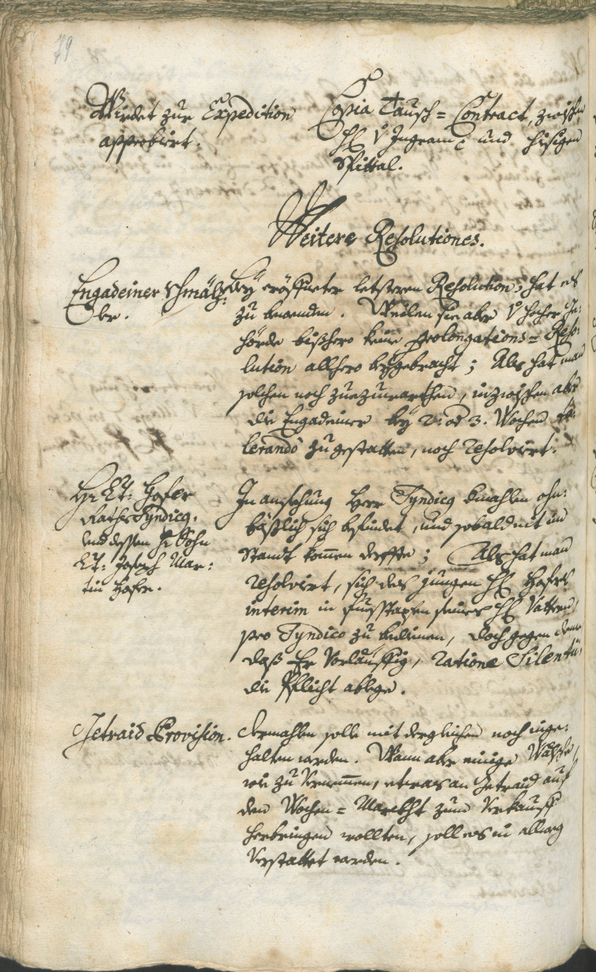 79
Wirdet zur Expedition
approbirt.
Copia Tausch= Contract, zwischen
H: v Ingram, und hiesigen
Spittal.
Weitere Resolutiones.
Engadeiner Schmälz=
ler.
Bey eröffneter letsteren Resolution, hat es
zu bewenden. Weilen sie aber v hocher Be=
hörde bißhero keine prolongations= Reso=
lution allhero beygebracht; Als hat man
solchen noch zuezuwarthen, inzwischen aber
die Engadeiner bey 2: od 3. Wochen to=
lerando zu gestatten, noch resolvirt.
Hr Lt: Hofer
Raths Syndicq,
und dessen H: Sohn
Lt: Joseph Mar=
tin Hofer.
In ansechung Herr Syndicq dermahlen ohn=
bäßlich sich befindet, und sobald nit im
Standt komen derffte; Als hat man
resolvirt, sich des jungen H: Hofers
interim in Fuesstapfen seines H: Vatters
pro Syndico zu bedienen, doch gegen deme
daß Er Vorläuffig, ratione Silentii
die Pflicht ablege.
Getraid Provision.
Dermahlen solle mit dergleichen noch inge=
halten werden. Wann aber einige
wie zu Vernemmen, etwas an Getraid auf
den Wochen= Marckht zum Verkauff
herbringen wollten, soll es in allweg
Verstattet werden.